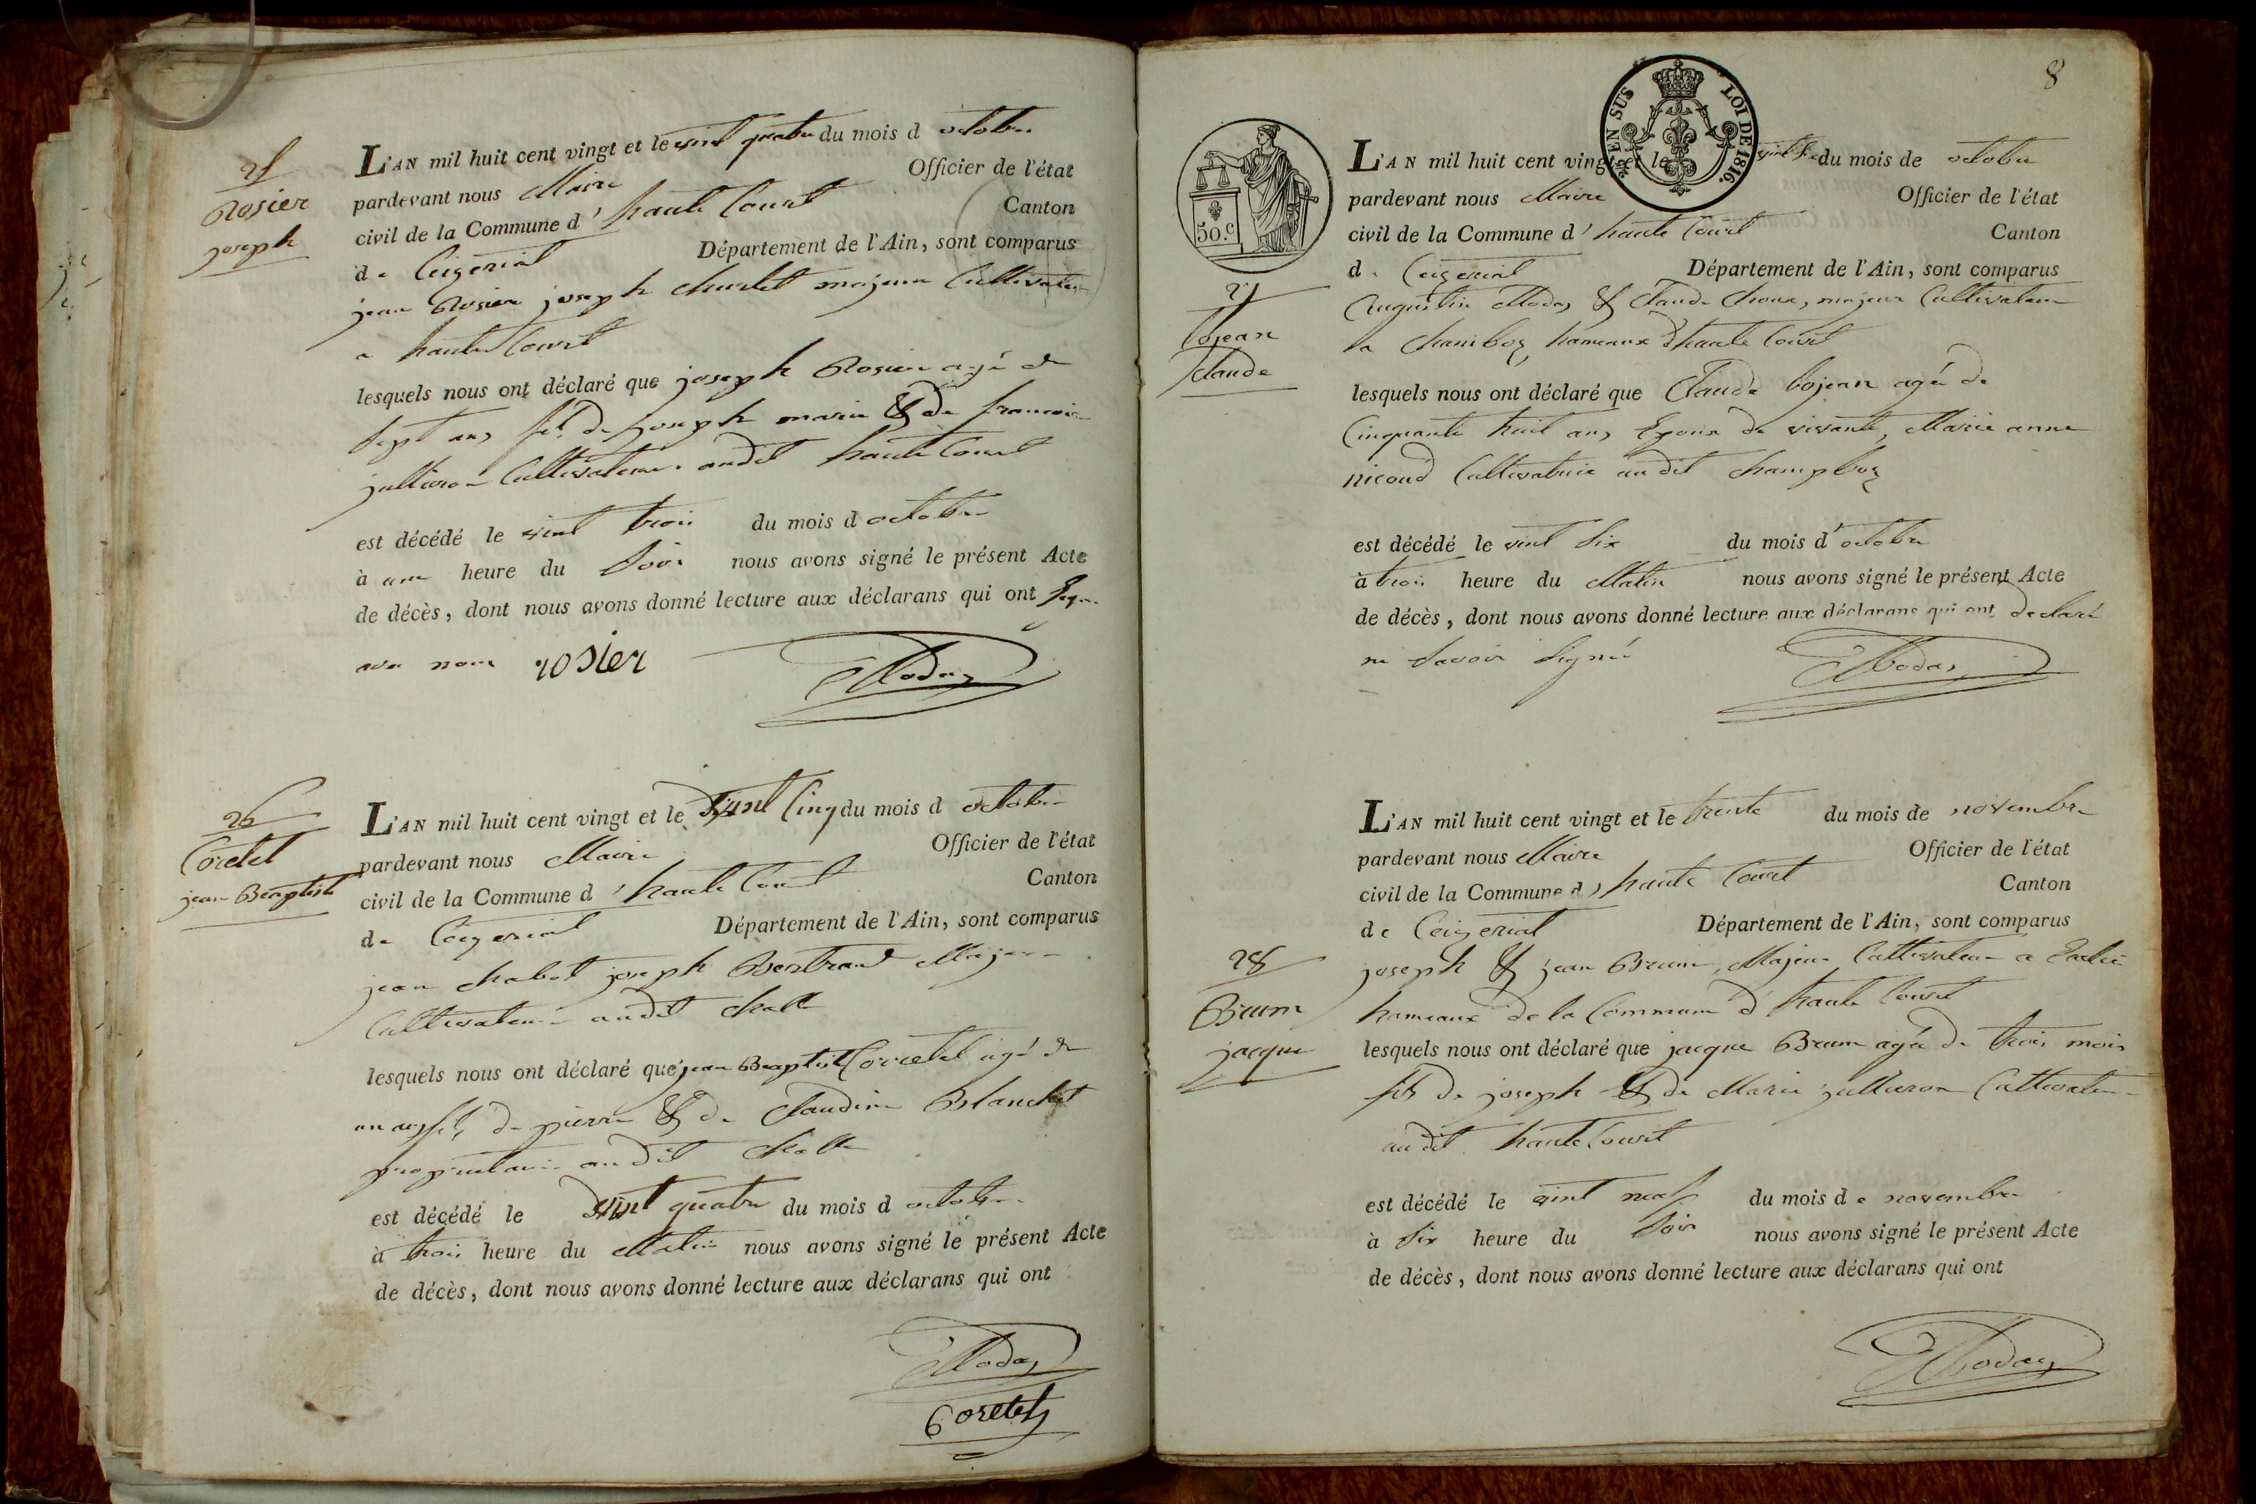 25
Rosier
joseph
L'AN mil huit cent vingt et le vint quatre du mois d octobre
pardevant nous Maire Officier de l'état
civil de la Commune d' haute Court Canton
de Ceizeriat Département de l'Ain, sont comparus
jean Rosier joseph majeur Cultivateur
a haute Court
lesquels nous ont déclaré que joseph Rosier agé de
sept ans fils de joseph marie & de francoise
jullieron Cultivateur audit haute Court
est décédé le vint trois du mois d octobre
à une heure du Soir nous avons signé le présent Acte
de décès, dont nous avons donné lecture aux déclarans qui ont signé
avec nous rosier Moday
26
Coretet
jean Baptiste
L'AN mil huit cent vingt et le vint Cinq du mois d octobre
pardevant nous Maire Officier de l'état
civil de la Commune d' haute Court Canton
de Ceizeriat Département de l'Ain, sont comparus
jean chabot joseph Bertrand Majeur
Cultivateur audit
lesquels nous ont déclaré que jean Baptiste Corretet agé de
un an fils de pierre & de Claudine Blanchet
proprietaire audit
est décédé le vint quatre du mois d octobre
à trois heure du Matin nous avons signé le présent Acte
de décès, dont nous avons donné lecture aux déclarans qui ont
Moday
Coretet
8
EN SUS LOI DE 1816.
50.c
27
bojean
Claude
L'AN mil huit cent vingt et le vint six du mois de octobre
pardevant nous Maire Officier de l'état
civil de la Commune d' haute Court Canton
d. Ceizeriat Département de l'Ain, sont comparus
Augustin Moday & Claude majeur Cultivateur
a chamboz hameaux d'haute Court
lesquels nous ont déclaré que Claude bojean agée de
Cinquante huit ans Epoux de vivante, Marie anne
nicoud Cultivatrice audit champboz
est décédé le vint six du mois d' octobre
à trois heure du Matin nous avons signé le présent Acte
de décès, dont nous avons donné lecture aux déclarans qui ont declaré
ne Savoir Signée Moday
28
Brum
jacque
L'AN mil huit cent vingt et le trente du mois de novembre
pardevant nous Maire Officier de l'état
civil de la Commune d' haute Court Canton
de Ceizeriat Département de l'Ain, sont comparus
joseph & jean Brum, Majeur Cultivateur a
hameaux de la Commune d haute Court
lesquels nous ont déclaré que jacque Brum agée de trois mois
fils de joseph & de Marie jullieron Cultivateur
audit haute Court
est décédé le vint neuf du mois de novembre
à Six heure du Soir nous avons signé le présent Acte
de décès, dont nous avons donné lecture aux déclarans qui ont
Moday